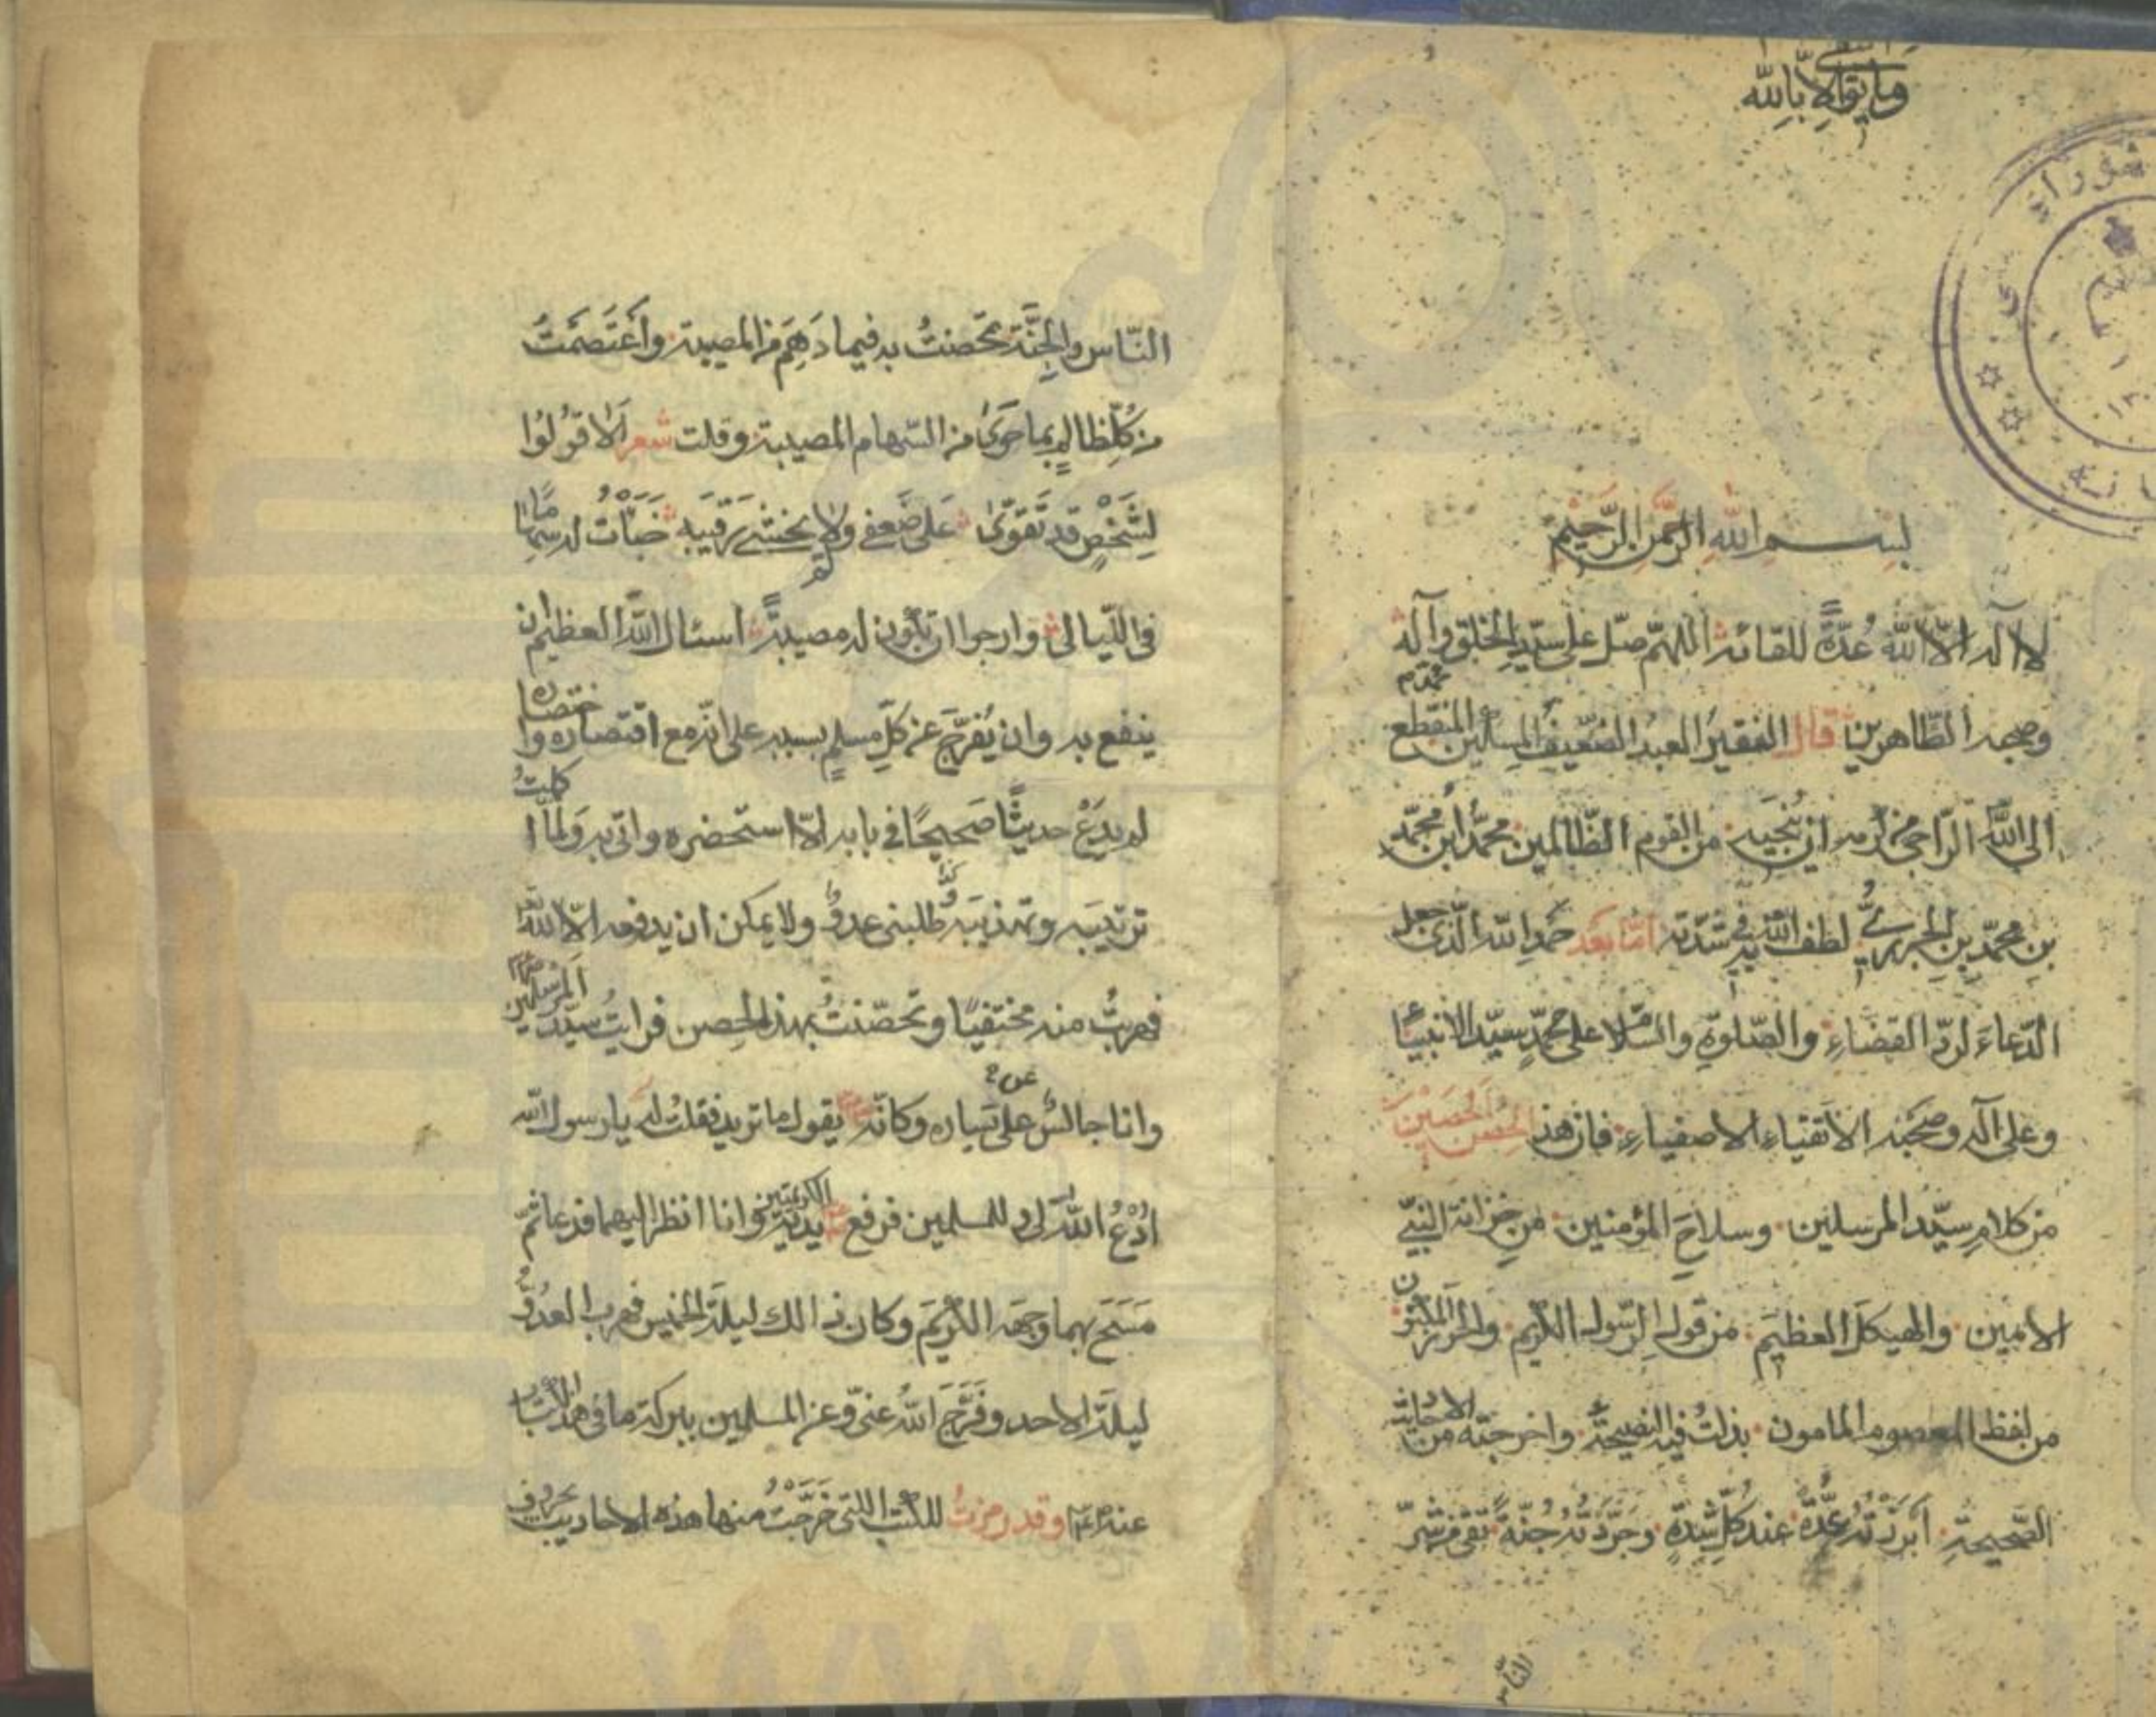 وما توفيقي الا بالله
بسم الله الرحمن الرحيم
لا اله الا الله عدة للقائه اللهم صل على سيد الخلق محمد وآله
وصحبه الطاهرين قال الفقير العبد الضعيف المسكين المنقطع
الى الله الراجي من كرمه ان ينجيه من القوم الظالمين محمد ابن محمد
بن محمد بن الجزري لطف الله به في شدته اما بعد حمد الله الذي جعل
الدعاء لرد القضاء والصلوة والسلام على محمد سيد الانبياء
وعلى آله وصحبه الاتقياء الاصفياء فان هذا الحصن الحصين
من كلام سيد المرسلين وسلاح المؤمنين من خزانة النبي
الامين والهيكل العظيم من قول الرسول الكريم والحرز المكنون
من لفظ المعصوم المامون بذلت فيه النصيحة واخرجته من الاحاديث
الصحيحة ابرزته عدة عند كل شدة وجردته جنة تقي من شر
الناس
الناس والجنة تحصنت به فيما دهم من المصيبة واعتصمت
من كل ظالم بما حوى من السهام المصيبة وقلت شعر الا قولوا
لشخص قد تقوى على ضعفي ولم يخش رقيبه خبأت له سهاما
في الليالي وارجوا ان تكون له مصيبة اسئال الله العظيم ان
ينفع به وان يفرج عن كل مسلم بسببه على انه مع اقتصاره واختصاره
لم يدع حديثا صحيحا في بابه الا استحضره واتى به ولما اكملت
ترتيبه وتهذيبه طلبني عدو ولا يمكن ان يدفعه الا الله
فهربت منه مختفيا وتحصنت بهذا الحصن فرايت سيد المرسلين
وانا جالس على يساره وكانه يقول ما تريد فقلت له يا رسول الله
ادع الله لي وللمسلمين فرفع يديه الكريمتين وانا انظر اليهما فدعا ثم
مسح بهما وجهه الكريم وكان ذالك ليلة الخميس فهرب العدو
ليلة الاحد وفرج الله عني وعن المسلمين ببركة ما في هذا الكتاب
عنه وقد رمزت للكتب اللتي خرجت منها هذه الاحاديث بحروف